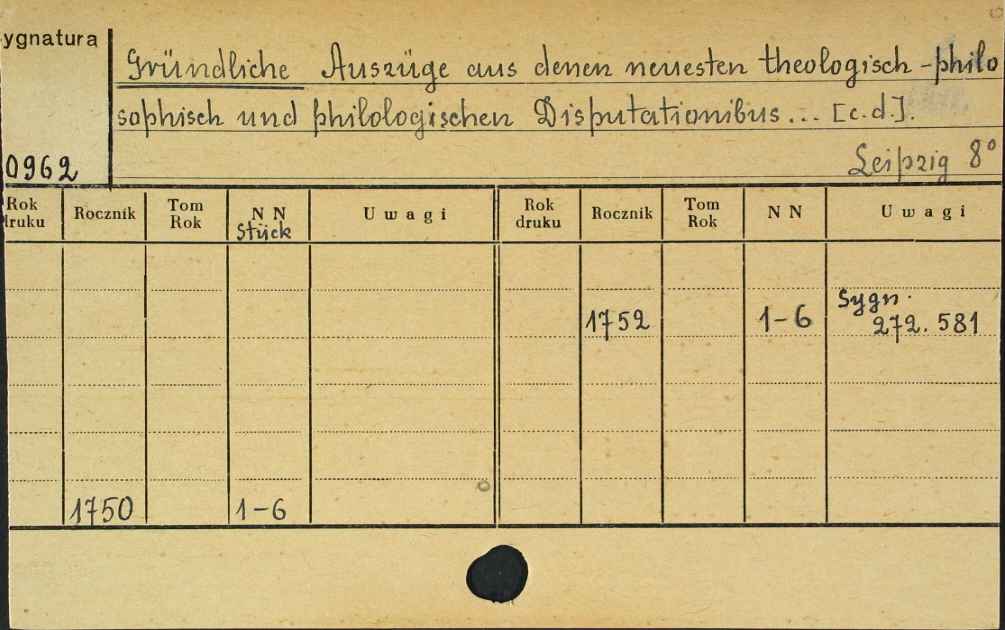 ygnatura
Gründliche Auszüge aus denen neuesten theologisch-philo
sophisch und philologischen Disputationibus... [c.d.].
0962
Leipzig 8°
Rok druku Rocznik Tom Rok NN Stück Uwagi Rok druku Rocznik Tom Rok NN Uwagi
1752 1-6 Sygn. 272.581
1750 1-6